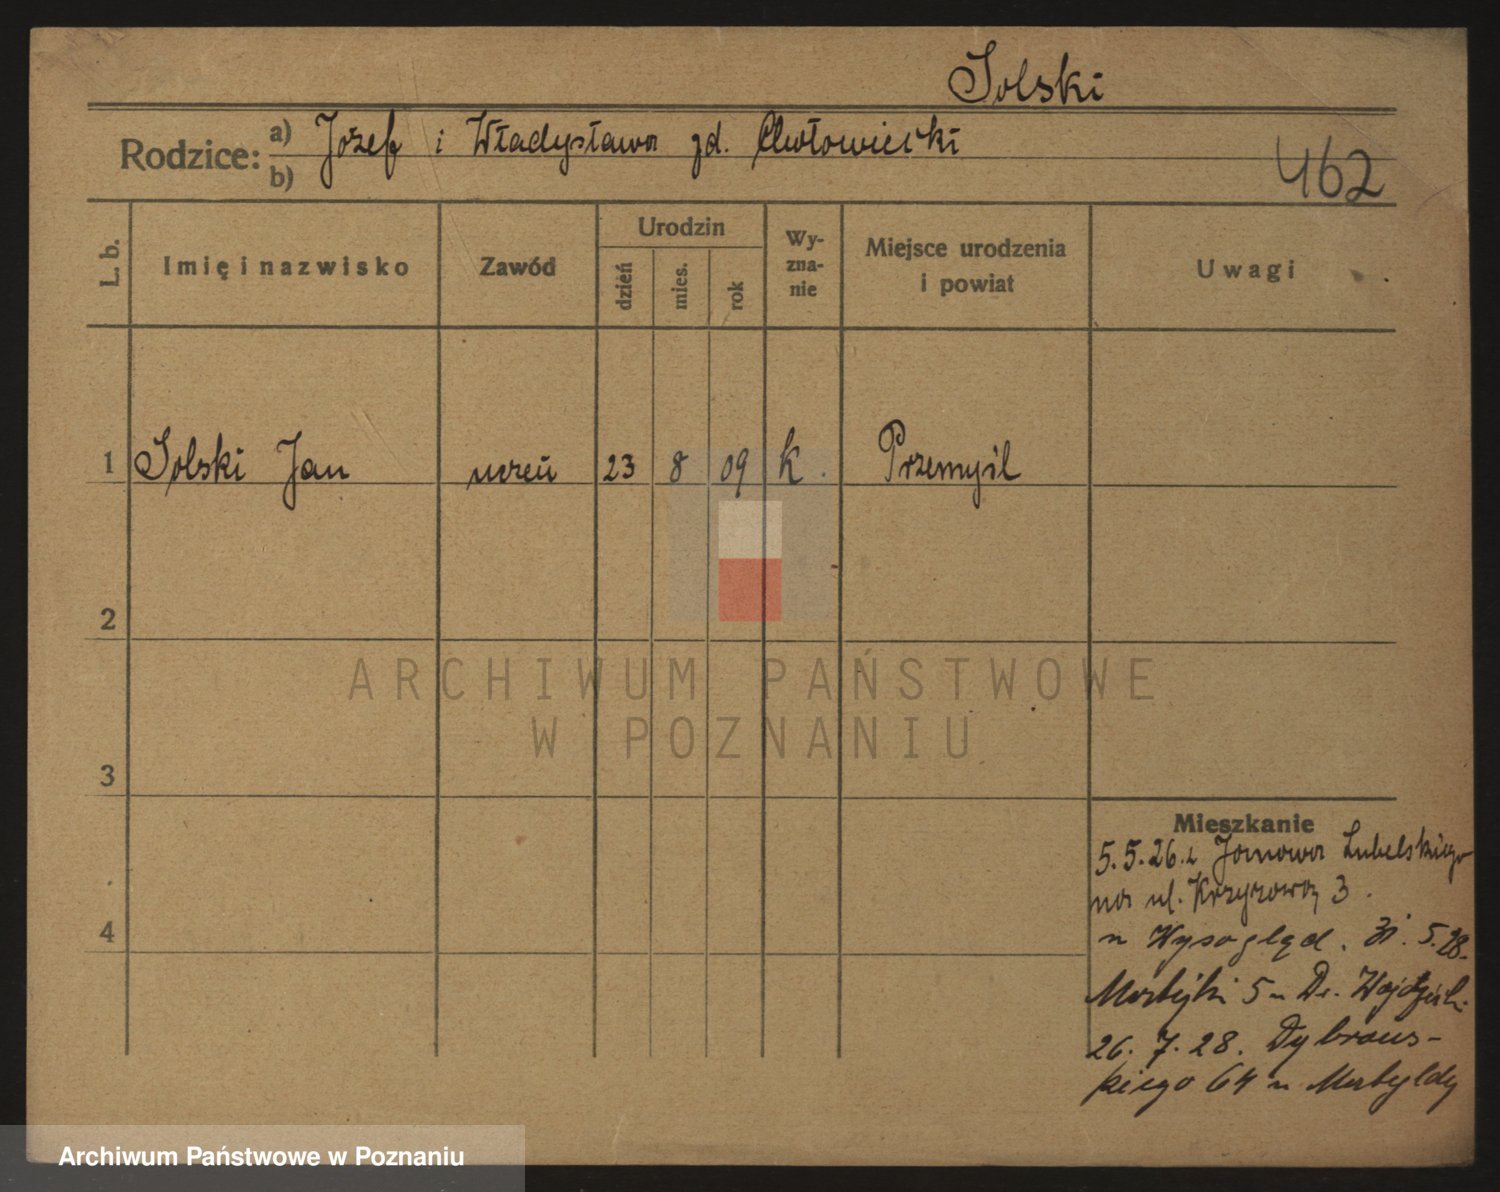 Solski
Rodzice: a) Józef i Władysława zd. Chołowiecki
b)
462
L. b.
Imię i nazwisko
Zawód
Urodzin
dzień
mies.
rok
Wy-
zna-
nie
Miejsce urodzenia
i powiat
Uwagi
1 Solski Jan uczeń 23 8 09 k. Przemyśl
2
3
4
Mieszkanie
5.5.26. z Janowa Lubelskiego
na ul. Krzyzową 3.
u Wysogląd. 31. 5.28.
5 u Dr.
26. 7. 28. Dąbrows-
kiego 64 u
ARCHIWUM PAŃSTWOWE
W POZNANIU
Archiwum Państwowe w Poznaniu